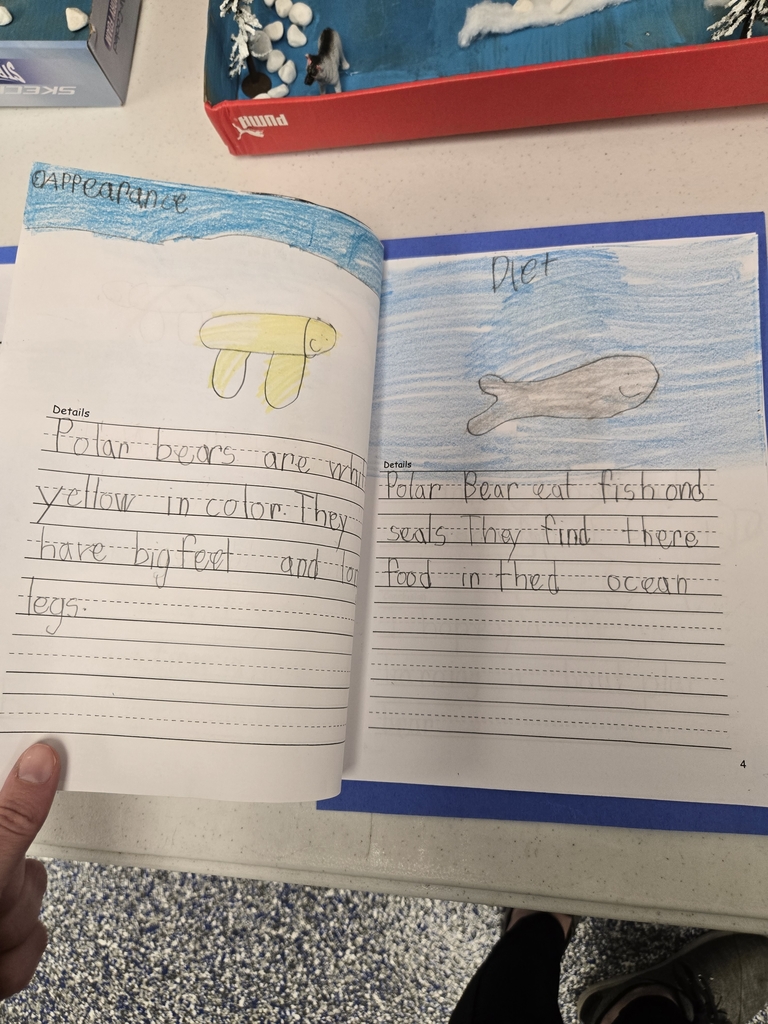 SKECH
PUMA
Appearance
Details
Polar bears are whi
yellow in color. They
have big feet and
legs.
Diet
Details
Polar Bear eat fish and
seals They find there
food in thed ocean
4